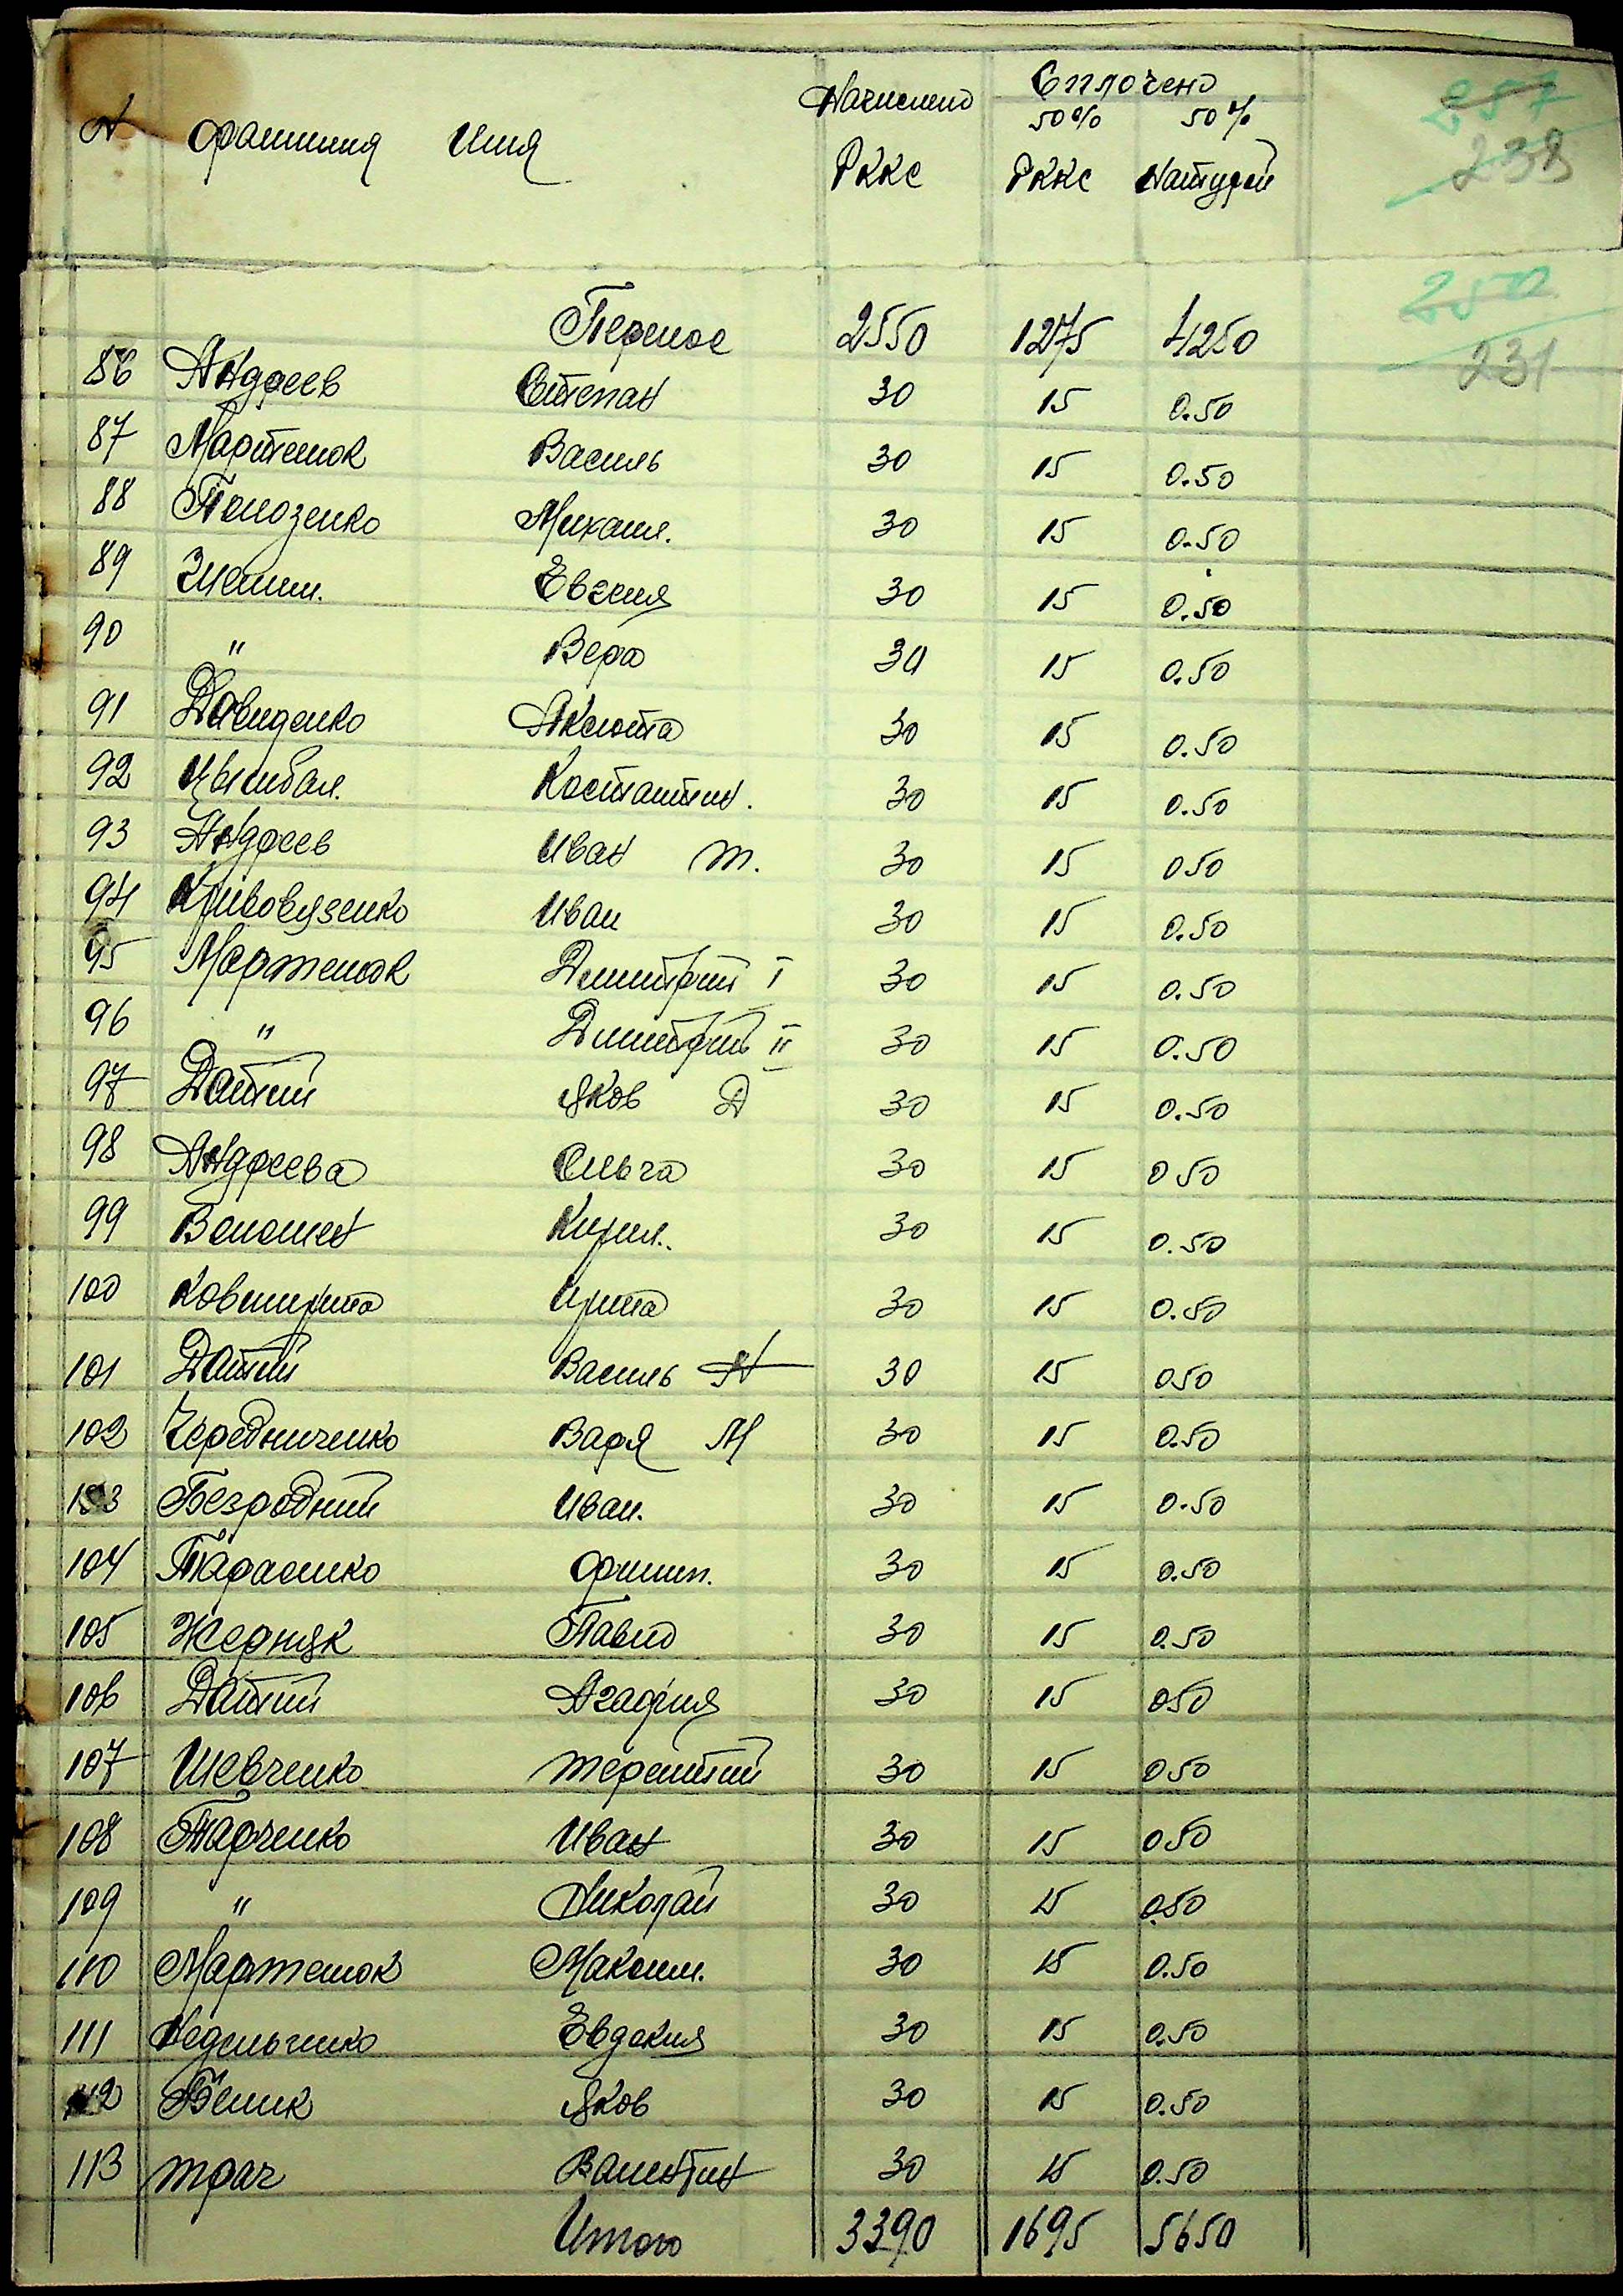 N Фамилия Имя Начислено Сплочено
50% 50%
РККС РККС Натурой
257
238
250
231
Перенос 2550 1275 4250
86 Андреев Степан 30 15 0.50
87 Мартенюк Василь 30 15 0.50
88 Полозенко Михаил. 30 15 0.50
89 Евгения 30 15 0.50
90 " Вера 30 15 0.50
91 Давиденко Аксюта 30 15 0.50
92 Цымбал. Костантин. 30 15 0.50
93 Андреев Иван Т. 30 15 050
94 Кривовязенко Иван 30 15 0.50
95 Мартенюк Дмитрий I 30 15 0.50
96 " Дмитрий II 30 15 0.50
97 Датий Яков Д 30 15 0.50
98 Андреева Ольга 30 15 0 50
99 Волошен Кирил. 30 15 0.50
100 Ковширина Ирина 30 15 0.50
101 Датий Василь Н 30 15 050
102 Чередниченко Варя М 30 15 0.50
103 Безродний Иван. 30 15 0.50
104 Тарасенко Филип. 30 15 0.50
105 Жедняк Павло 30 15 0.50
106 Датий Агафия 30 15 050
107 Шевченко Терентий 30 15 050
108 Тарченко Иван 30 15 050
109 " Николай 30 15 0.50
110 Мартенюк Максим. 30 15 0.50
111 Недильчико Евдокия 30 15 0.50
112 Белик Яков 30 15 0.50
113 Трач Валентин 30 15 0.50
Итого 3390 1695 5650